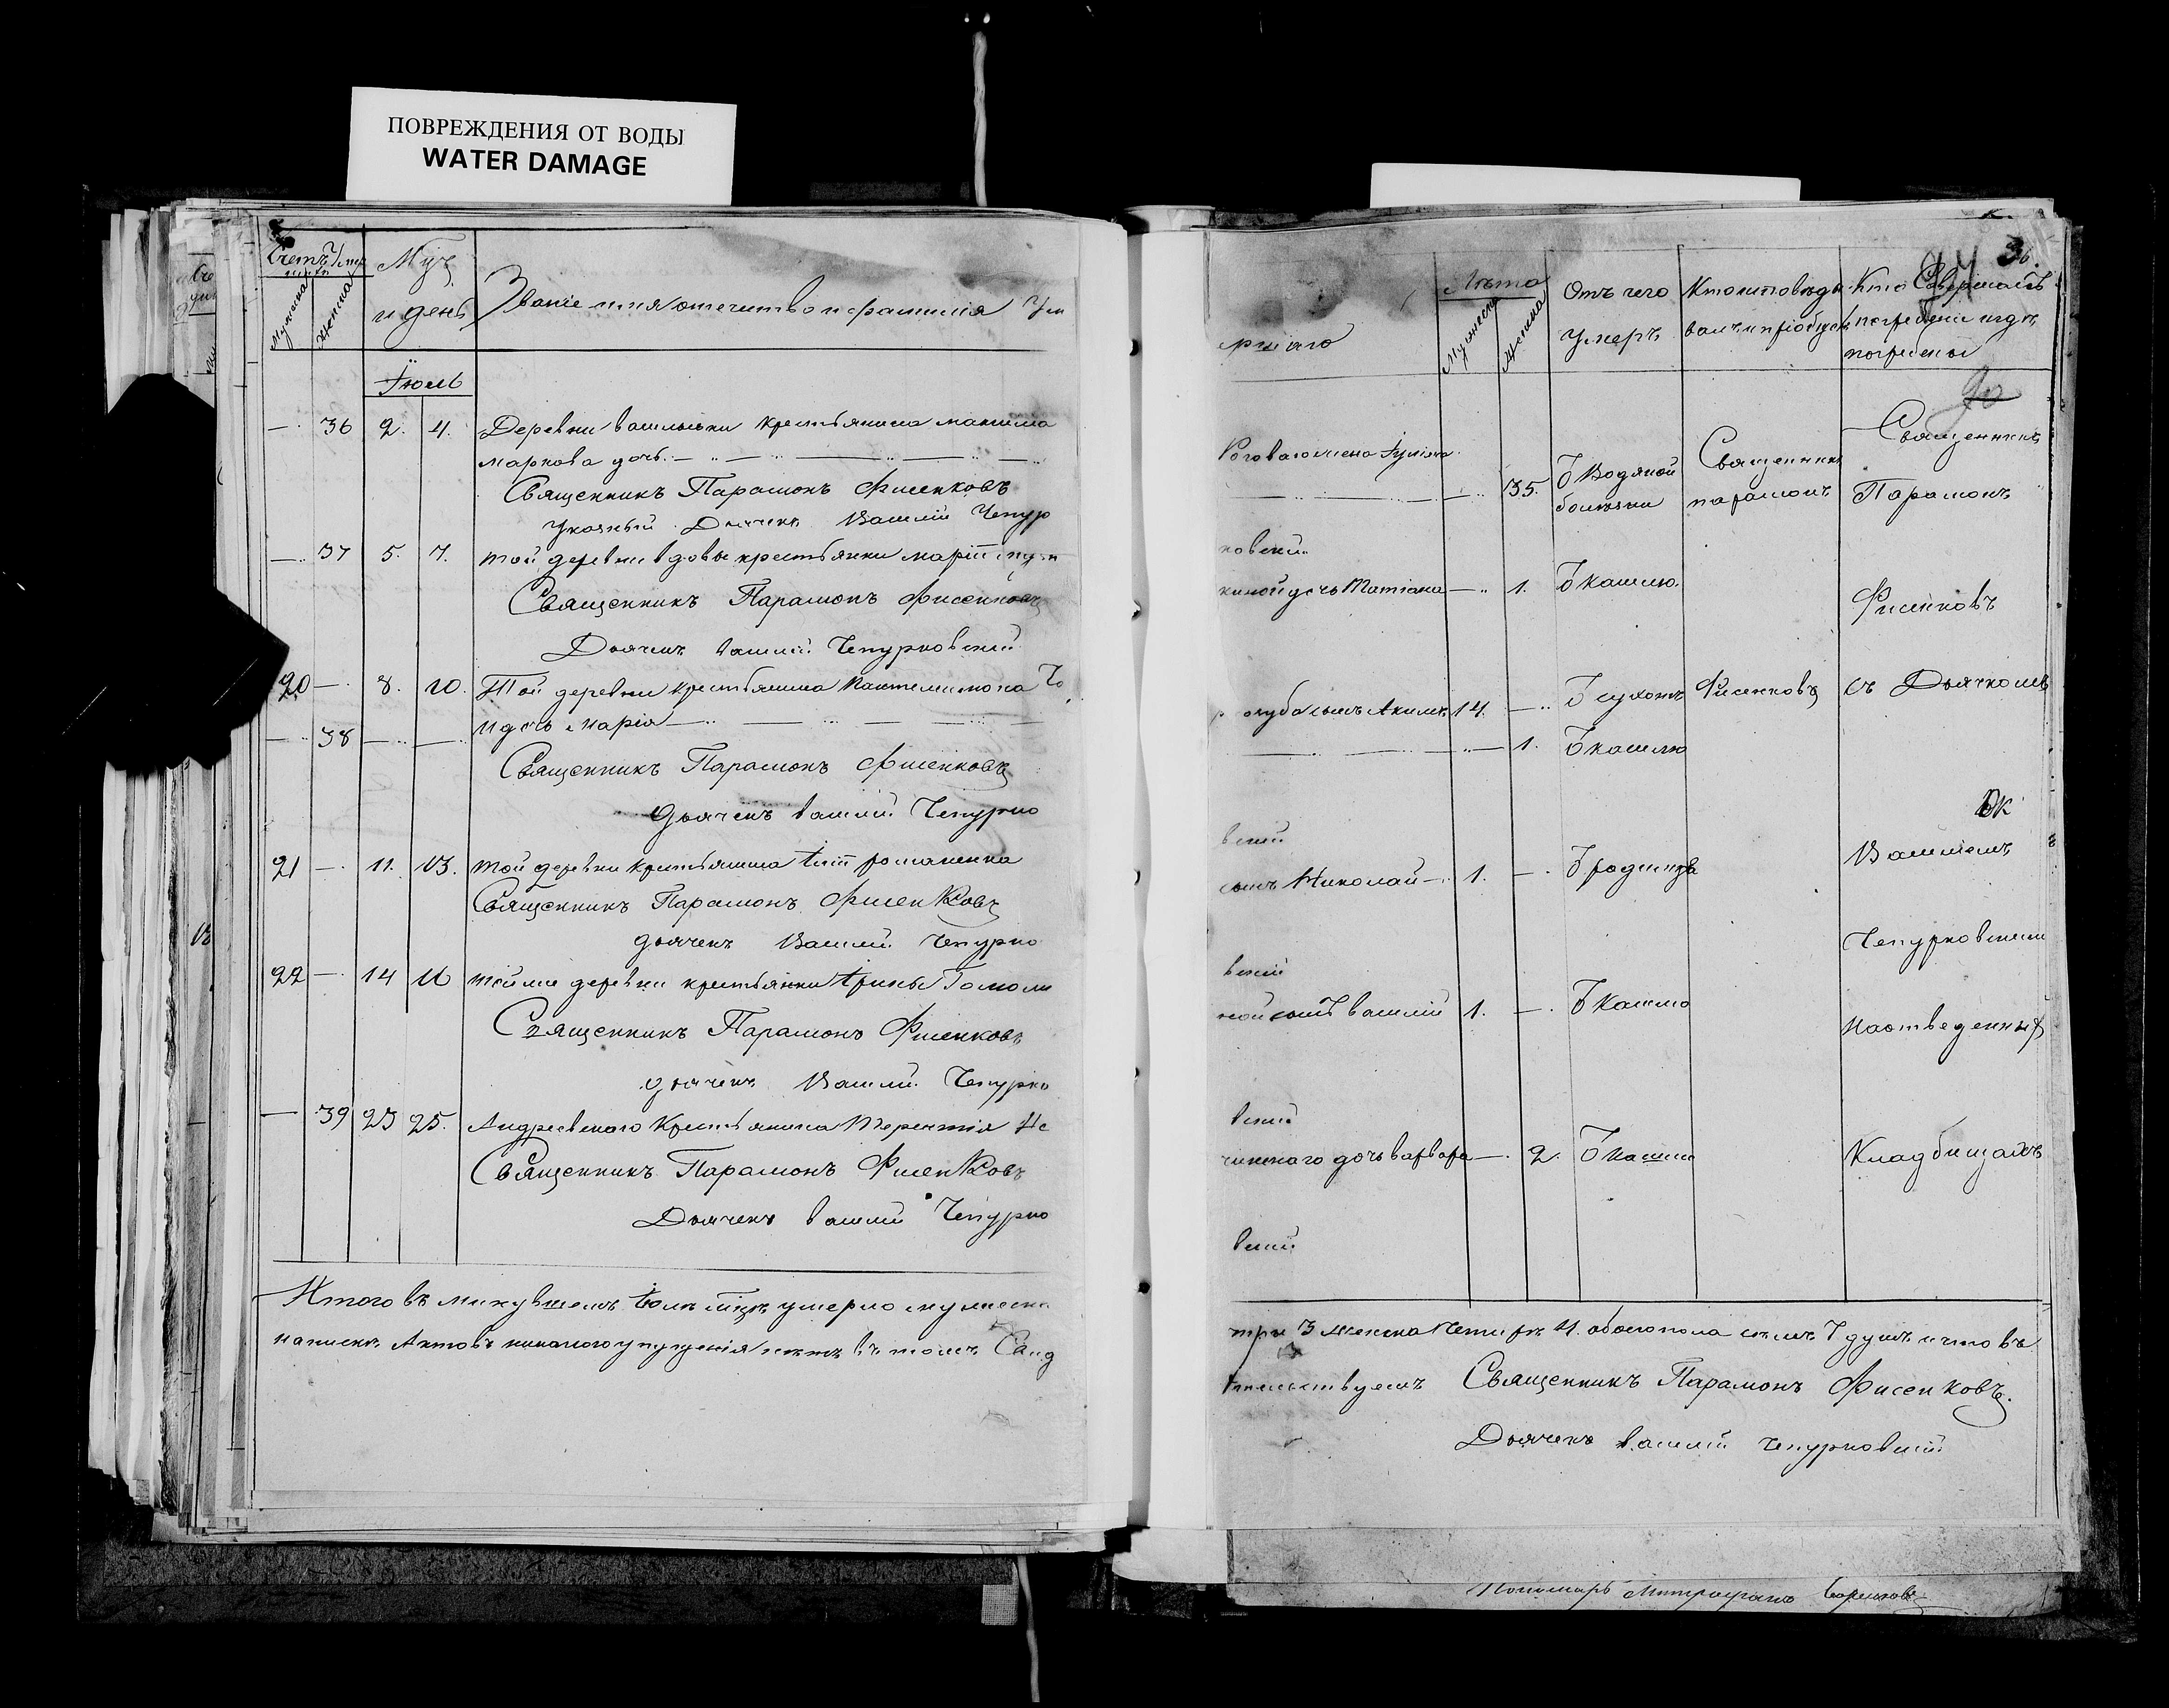 ПОВРЕЖДЕНИЯ ОТ ВОДЫ
WATER DAMAGE
Счетъ
Мужеска
Женска
и день
Званіе имя отечество и фамилія Ум
Іюль
—. 36 2. 4. Деревни крестьянина максима
маркова дочь.
Священникъ Парамонъ Фисенковъ
Указный Дьячекъ Василій Чепур
—. 37 5. 7. той деревни вдовы крестьянки маріи
Священникъ Парамонъ Фисенковъ
Дьячекъ василій Чепурковскій
20 —. 8. 10. Той деревни крестьянина Пантелимона Го
— 38 — — и дочь марія
Священникъ Парамонъ Фисенковъ
дьячекъ василій Чепурко
21 —. 11. 13. той деревни крестьянина романенка
Священникъ Парамонъ Фисенковъ
дьячекъ Василій Чепурко
22 —. 14 16 той же деревни крестьянки Ірины Гомоли
Священникъ Парамонъ Фисенковъ
дьячекъ Василій Чепурко
— 39 23 25. Андреевского Крестьянина Терентія Не
Священникъ Парамонъ Фисенковъ
Дьячекъ василій Чепурко
Итого въ минувшемъ Іюлѣ мцѣ умерло мужеска
напискѣ Актовъ никакого упущенія нѣтъ въ томъ Свид
ршаго
Лѣта
Мужеска
Женска
Отъ чего
Умеръ
Кто исповѣды
валъ и пріобщ
Кто Совершалъ
погребеніе и гдѣ
погребены
жена
—. 35. Ѿ Водяной
болѣзни
Священникъ
парамонъ
Священникъ
Парамонъ
ковскій
киной дочь Татіана — 1. Ѿ Кашлю
Фисенковъ
олуба сынъ Акимъ 14. —. Ѿ сухотъ Фисенковъ съ Дьячкомъ
— 1. Ѿ кашлю
вскій
сынъ Николай —. 1. —. Ѿ родимца
Василіемъ
Чепурковскимъ
вскій
ной сынъ василій 1. —. Ѿ Кашлю
На отведенных
вскій
чинского дочь варвара —. 2. Ѿ Кашлю
Кладбищахъ
вскій
три 3 женска Четыре 4. обоего пола семъ 7 душъ и что въ
тельствуемъ Священникъ Парамонъ Фисенковъ.
Дьячекъ василій Чепурковскій
Пономарь Митрофанъ